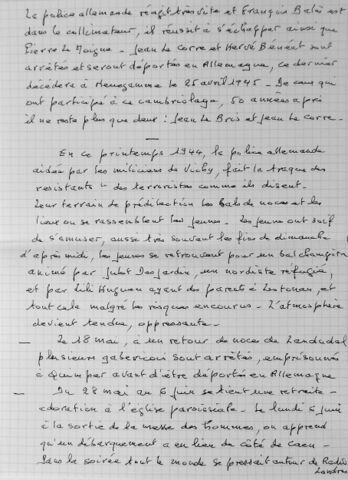 La police allemande réagit très vite et François Balès est
dans le collimateur, il réussit à s'échapper ainsi que
Pierre Le Moigne - Jean Le Corre et Hervé Bénéat sont
arrêtés et seront déportés en Allemagne, ce dernier
décédera à Neuengamme le 25 avril 1945 - De ceux qui
ont participé à ce cambriolage, 50 années après
il ne reste plus que deux : Jean Le Bris et Jean Le Corre -
En ce printemps 1944, la police allemande
aidée par les miliciens de Vichy, fait la traque des
résistants "des terroristes comme ils disent.
Leur terrain de prédilection les bals de noces et les
lieux où se rassemblent les jeunes - Les jeunes ont soif
de s'amuser, aussi très souvent les fins de dimanche
d'après midi, les jeunes se retrouvent pour un bal champêtre
animé par Jules Desjardin, un nordiste réfugié,
et par Lili Huguen ayant des parents à Lestonan, et
tout cela malgré les risques encourus - L'atmosphère
devient tendue, oppressante -
Le 18 mai, à un retour de noces de Landudal
plusieurs gabéricois sont arrêtés, emprisonnés
à Quimper avant d'être déportés en Allemagne
- Du 28 mai au 6 juin se tient une retraite -
adoration à l'église paroissiale - Le lundi 5 juin
à la sortie de la messe des hommes, on apprend
qu'un débarquement a eu lieu du côté de Caen -
Dans la soirée tout le monde se pressait autour de Radio
Londres